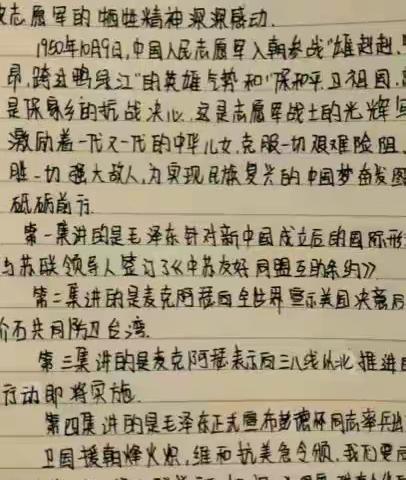 志愿军的牺牲精神深深感动.
1950年10月9日,中国人民志愿军入朝参战"雄赳赳,
昂,跨过鸭绿江"的英雄气势和"保和平卫祖国,
是保家乡的抗战决心,这是志愿军战士的光辉写
激励着一代又一代的中华儿女,克服一切艰难险阻
胜一切强大敌人,为实现民族复兴的中国梦奋发图
砥砺前行.
第一集讲的是毛泽东针对新中国成立后的国际形
与苏联领导人签订了《中苏友好同盟互助条约》
第二集讲的是麦克阿瑟向全世界宣示美国决意后
介石共同防卫台湾.
第三集讲的是麦克阿瑟表示向三八线以北推进
行动即将实施.
第四集讲的是毛泽东正式宣布彭德怀同志率兵出
卫国援朝烽火炽,维和抗美急令颁,我们要